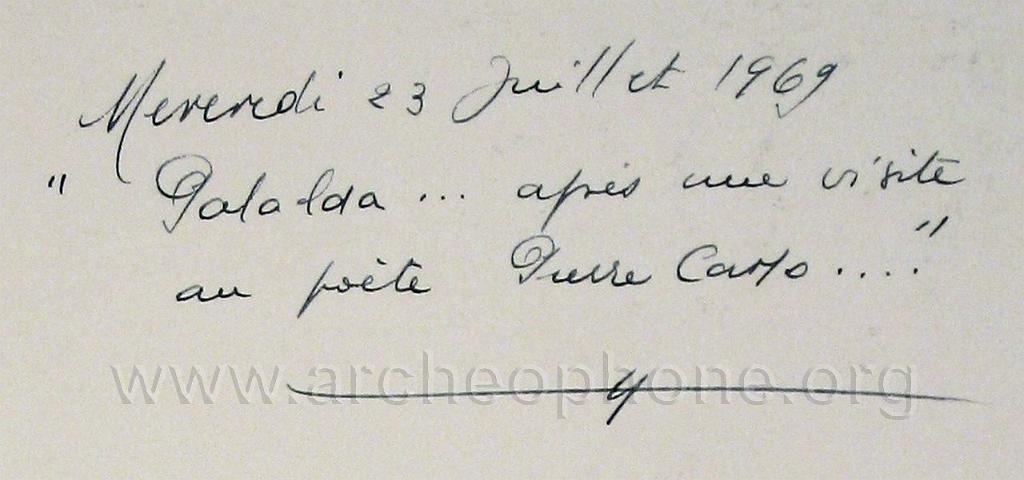 Mercredi 23 Juillet 1969
" Palalda ... après une visite
au poète Pierre Camo ...."
www.archeophone.org